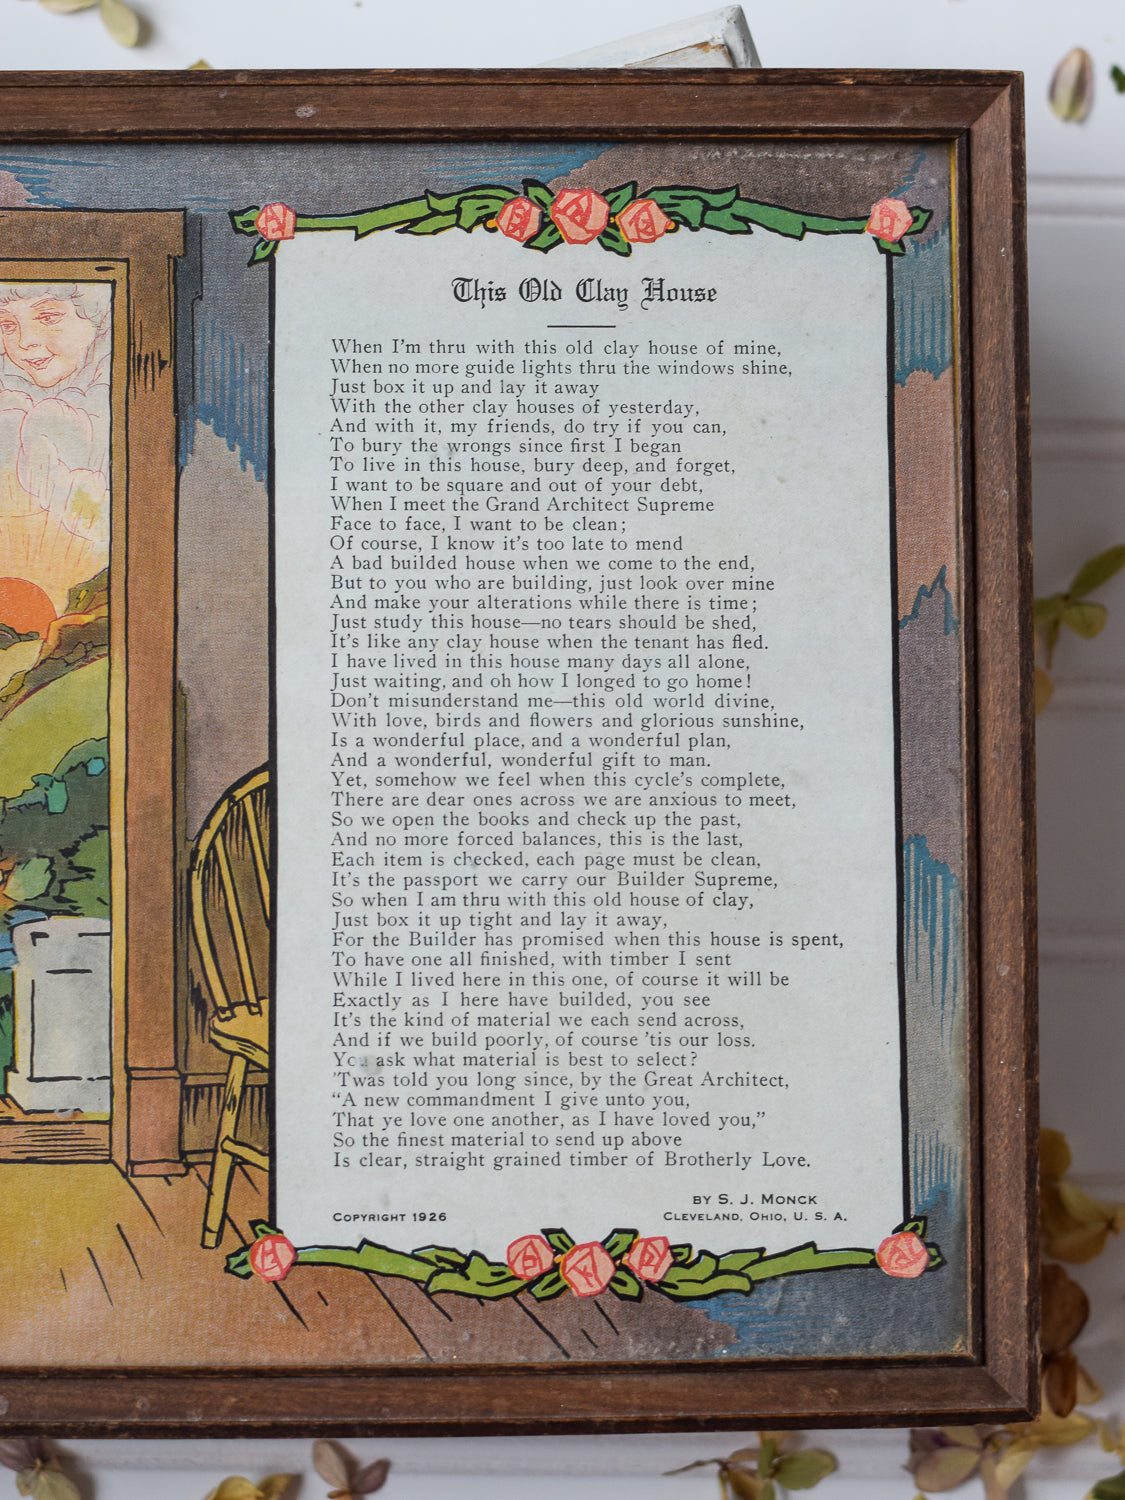 This Old Clay House
When I'm thru with this old clay house of mine,
When no more guide lights thru the windows shine,
Just box it up and lay it away
With the other clay houses of yesterday,
And with it, my friends, do try if you can,
To bury the wrongs since first I began
To live in this house, bury deep, and forget,
I want to be square and out of your debt,
When I meet the Grand Architect Supreme
Face to face, I want to be clean;
Of course, I know it's too late to mend
A bad builded house when we come to the end,
But to you who are building, just look over mine
And make your alterations while there is time;
Just study this house—no tears should be shed,
It's like any clay house when the tenant has fled.
I have lived in this house many days all alone,
Just waiting, and oh how I longed to go home!
Don't misunderstand me—this old world divine,
With love, birds and flowers and glorious sunshine,
Is a wonderful place, and a wonderful plan,
And a wonderful, wonderful gift to man.
Yet, somehow we feel when this cycle's complete,
There are dear ones across we are anxious to meet,
So we open the books and check up the past,
And no more forced balances, this is the last,
Each item is checked, each page must be clean,
It's the passport we carry our Builder Supreme,
So when I am thru with this old house of clay,
Just box it up tight and lay it away,
For the Builder has promised when this house is spent,
To have one all finished, with timber I sent
While I lived here in this one, of course it will be
Exactly as I here have builded, you see
It's the kind of material we each send across,
And if we build poorly, of course 'tis our loss.
ask what material is best to select?
'Twas told you long since, by the Great Architect,
"A new commandment I give unto you,
That ye love one another, as I have loved you,"
So the finest material to send up above
Is clear, straight grained timber of Brotherly Love.
BY S. J. MONCK
COPYRIGHT 1926 CLEVELAND, OHIO, U. S. A.